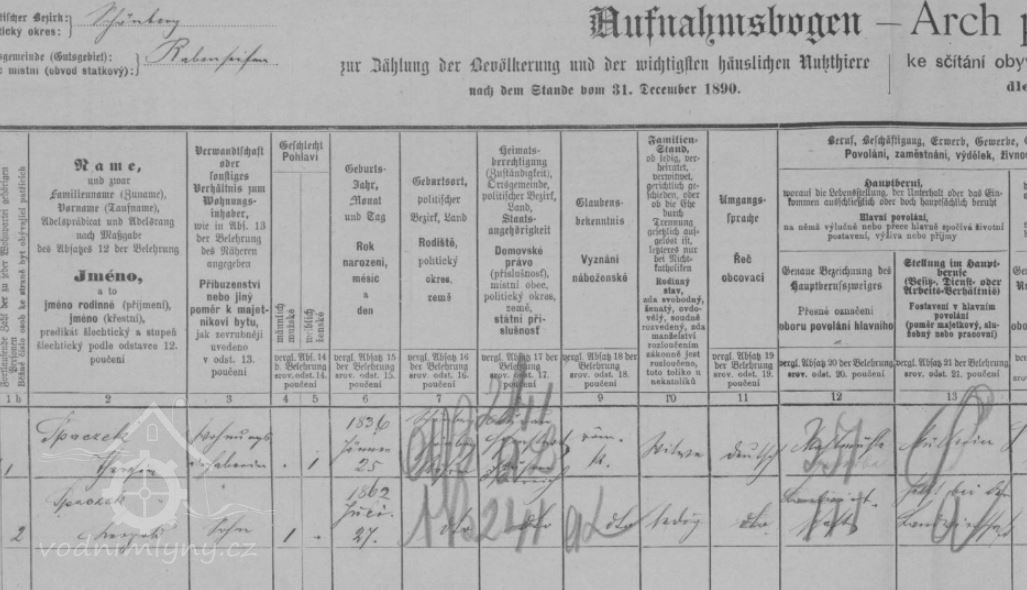 tischer Bezirk: Schönberg
tický okres:
sgemeinde (Gutsgebiet): Rabenseifen
c místní (obvod statkový):
Aufnahmsbogen — Arch
zur Zählung der Bevölkerung und der wichtigsten häuslichen Nutzthiere
ke sčítání oby
nach dem Stande vom 31. December 1890.
dle
Fortlaufende Zahl der zu jeder Wohnpartei gehörigen Personen
Běžné číslo osob ke straně byt obývající patřících
Name,
und zwar
Familienname (Zuname),
Vorname (Taufname),
Adelsprädicat und Adelsrang
nach Maßgabe
des Absatzes 12 der Belehrung
Jméno,
a to
jméno rodinné (příjmení),
jméno (křestní),
predikát šlechtický a stupeň
šlechtický podle odstavce 12.
poučení
Verwandtschaft
oder
sonstiges
Verhältnis zum
Wohnungs-
inhaber,
wie in Abs. 13
der Belehrung
des Näheren
angegeben
Příbuzenství
nebo jiný
poměr k majet-
níkovi bytu,
jak zevrubněji
uvedeno
v odst. 13.
poučení
Geschlecht
Pohlaví
männlich
mužské
weiblich
ženské
vergl. Abs. 14
d. Belehrung
srov. odst. 14.
poučení
Geburts-
Jahr,
Monat
und Tag
Rok
narození,
měsíc
a
den
vergl. Absatz 15
der Belehrung
srov. odst. 15.
poučení
Geburtsort,
politischer
Bezirk, Land
Rodiště,
politický
okres,
země
vergl. Absatz 16
der Belehrung
srov. odst. 16.
poučení
Heimats-
berechtigung
(Zuständigkeit),
Ortsgemeinde,
politischer Bezirk,
Land,
Staats-
angehörigkeit
Domovské
právo
(příslušnost),
místní obec,
politický okres,
země,
státní pří-
slušnost
vergl. Absatz 17 der
Belehrung
srov. odst. 17.
poučení
Glaubens-
bekenntnis
Vyznání
náboženské
vergl. Absatz 18 der
Belehrung
srov. odst. 18.
poučení
Familien-
Stand,
ob ledig, ver-
heiratet,
verwitwet,
gerichtlich ge-
schieden, oder
ob die Ehe
durch
Trennung
gesetzlich auf-
gelöst ist,
letzteres nur
bei Nicht-
katholiken
Rodinný
stav,
zda svobodný,
ženatý, ovdo-
vělý, soudně
rozvedený, zda
manželství
rozloučením
zákonně jest
rozloučeno,
toto toliko u
nekatolíků
Umgangs-
sprache
Řeč
obcovací
vergl. Absatz 19
der Belehrung
srov. odst. 19.
poučení
Beruf, Beschäftigung, Erwerb, Gewerbe,
Povolání, zaměstnání, výdělek, živno
Hauptberuf,
worauf die Lebensstellung, der Unterhalt oder das Ein-
kommen ausschließlich oder doch hauptsächlich beruht
Hlavní povolání,
na němž výlučně nebo přece hlavně spočívá životní
postavení, výživa nebo příjmy
Genaue Bezeichnung des
Hauptberufszweiges
Přesné označení
oboru povolání hlavního
vergl. Absatz 20 der Belehrung
srov. odst. 20. poučení
Stellung im Haupt-
berufe
(Besitz-, Dienst- oder
Arbeits-Verhältnis)
Postavení v hlavním
povolání
(poměr majetkový, slu-
žebný nebo pracovní)
vergl. Absatz 21 der Belehrung
srov. odst. 21. poučení
1 b 2 3 4 5 6 7 8 9 10 11 12 13
1 Spaczek Theresia Wohnungs inhaberin 1 1836 Jänner 25 röm. k. Witwe deutsch Mahlmühle Müllerin
2 Spaczek Sohn 1 1862 Juli 27. dto dto dto ledig dto
vodnimlyny.cz